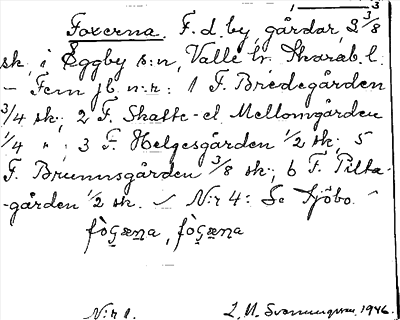 Foxerna. F. d. by, gårdar, 2 3/8
sk, i Eggby s:n, Valle hr. Skarab. l.
- Fem jb n:r: 1 F. Bredegården
3/4 sk; 2 F. Skatte- el. Mellomgården
1/4 "; 3 F. Helgesgården 1/2 sk; 5
F. Brunnsgården 3/8 sk; 6 F. Pilta-
-gården 1/2 sk. N:r 4: Se Sjöbo.
N:r 1. 1946.